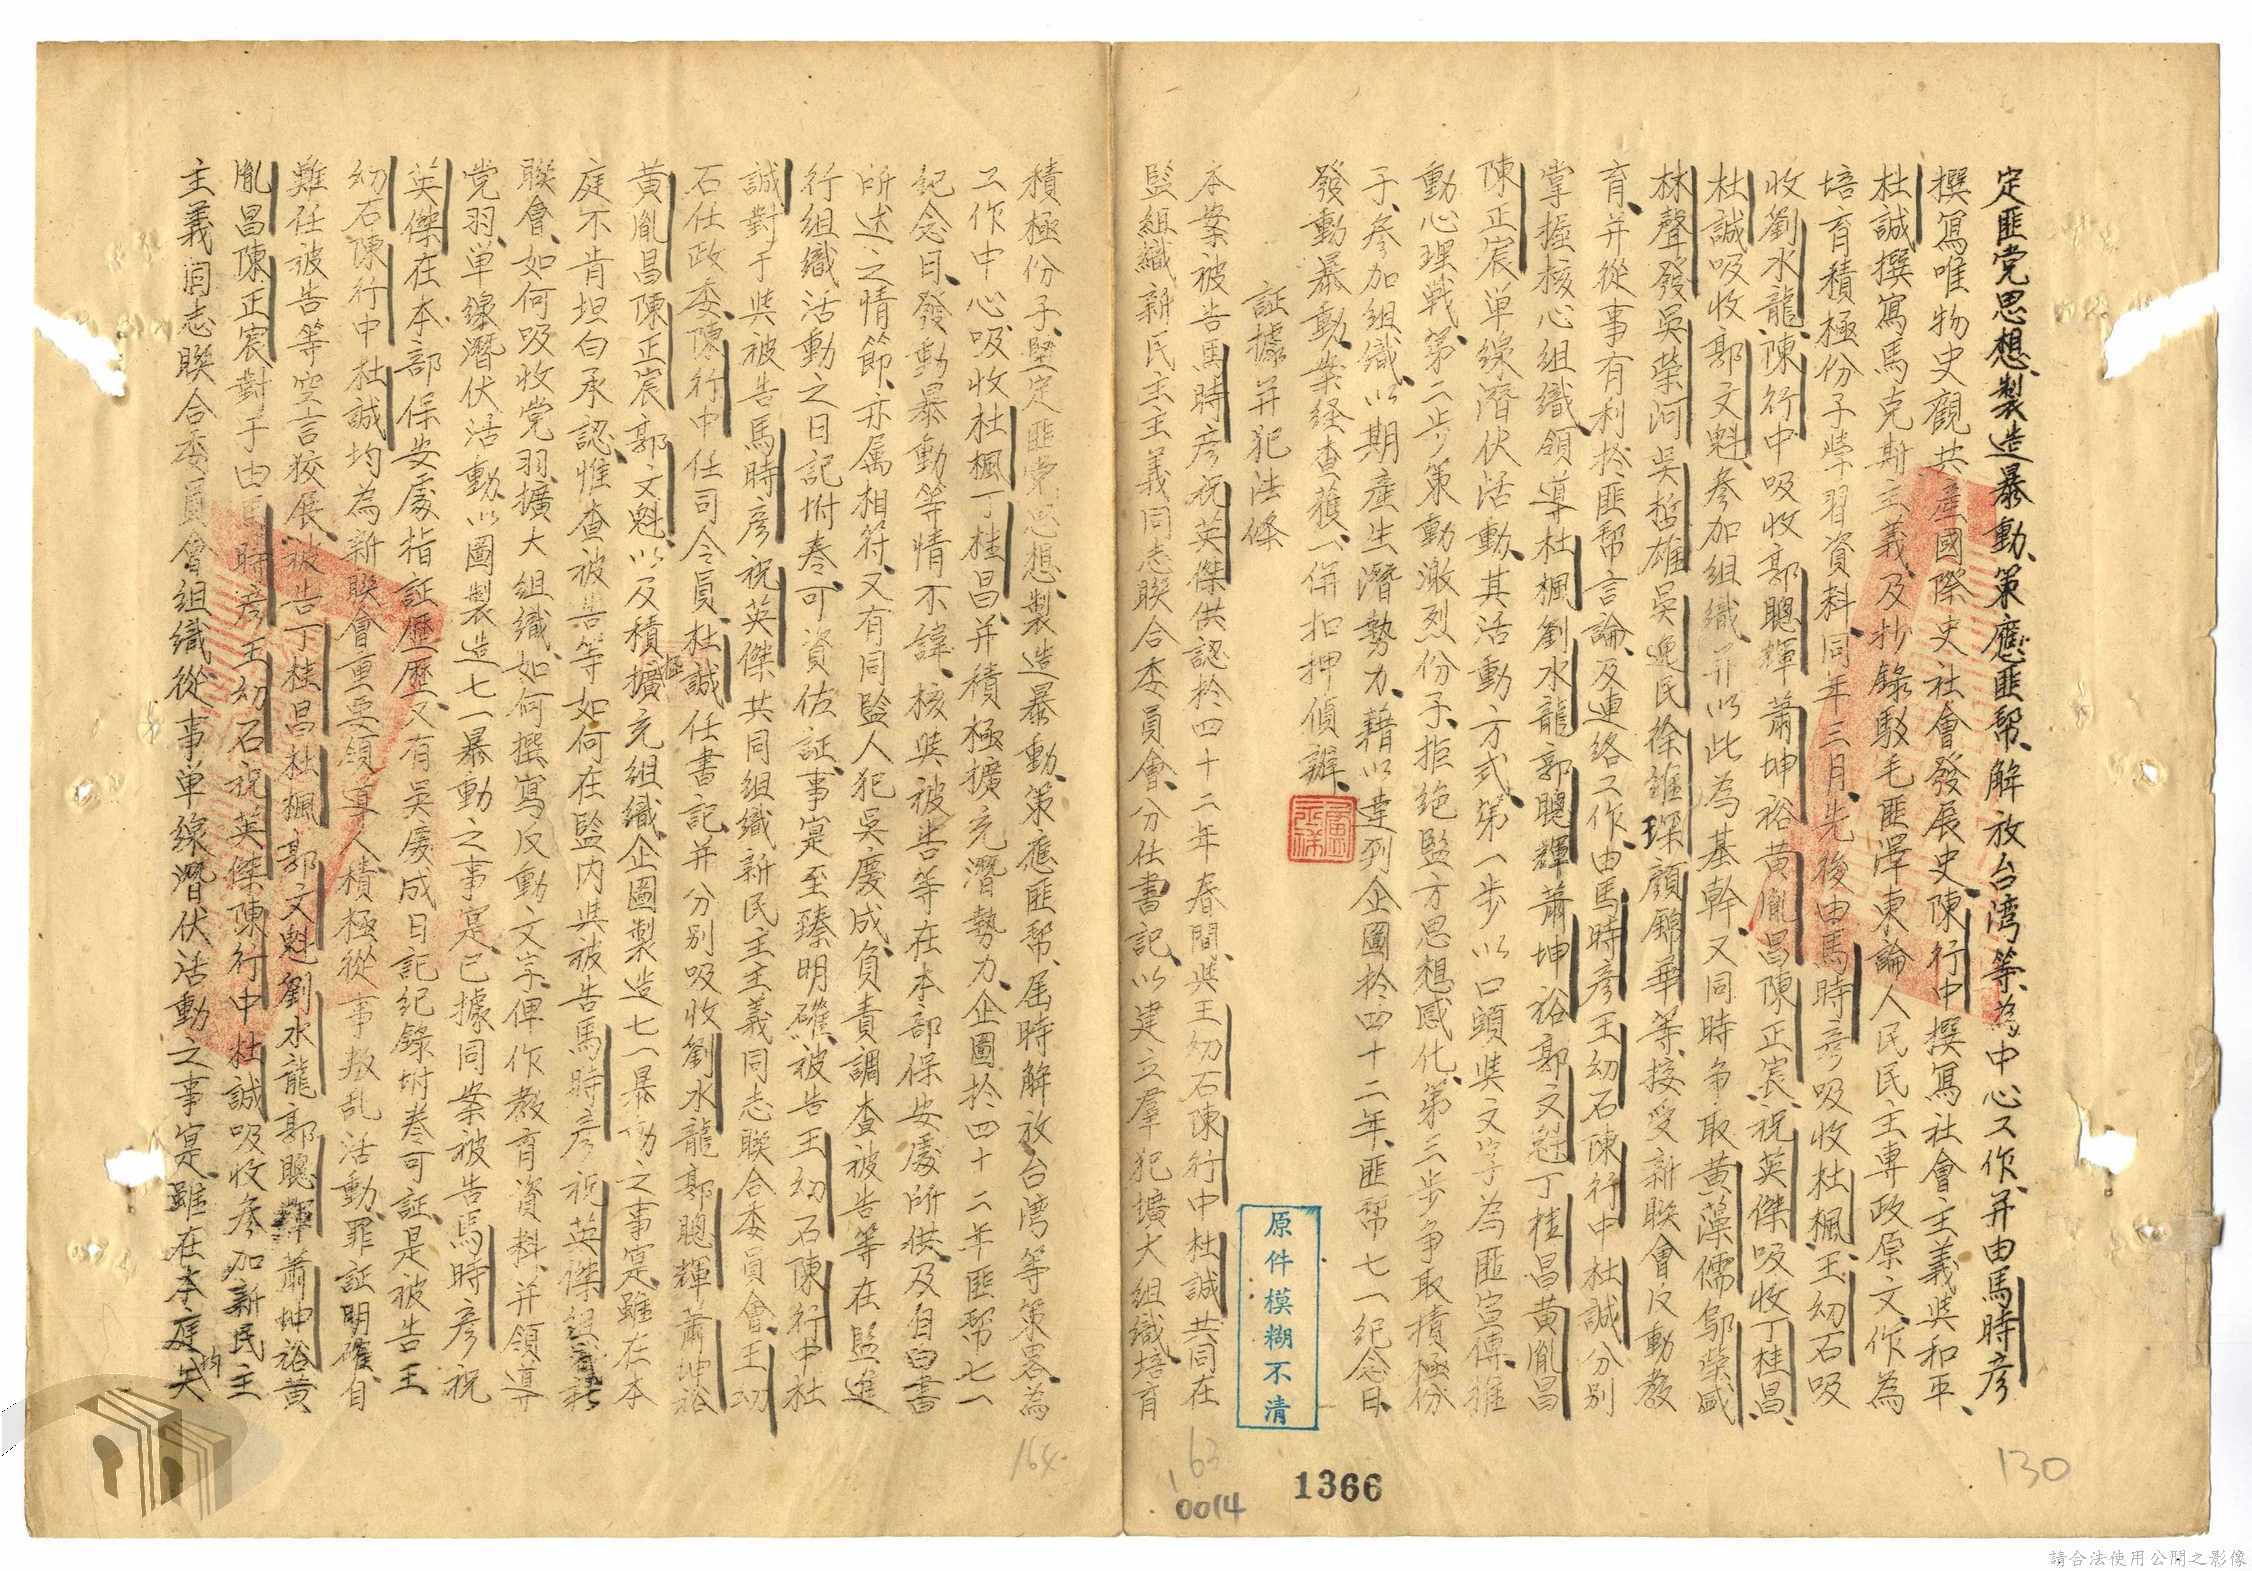 定匪党思想、製造暴動、策應匪帮、解放台湾等為中心工作、并由馬時彦
撰寫唯物史觀共產國際史社會發展史、陳行中撰寫社會主義與和平、
杜誠撰寫馬克斯主義、及抄錄毛匪澤東論人民民主專政原文、作為
培育積極份子學習資料、同年三月、先後由馬時彦吸收杜楓、王幼石吸
收劉水龍、陳行中吸收郭聰輝蕭坤裕黄胤昌陳正宸、祝英傑吸收丁桂昌、
杜誠吸收郭文魁、參加組織、并以此為基幹、又同時争取黄藻儒鄔榮盛
林聲發吳榮河吳哲雄吳逸民徐維琛顏錦華等、接受新聯會反動教
育、并從事有利於匪帮言論、及連絡工作、由馬時彦王幼石陳行中杜誠分別
掌握核心組織、領導杜楓劉水龍郭聰輝蕭坤裕郭文魁丁桂昌黄胤昌
陳正宸单線潛伏活動、其活動方式、第一步以口頭與文字為匪宣傳、推
動心理戰、第二步策動激烈份子、拒绝監方思想感化、第三步争取積極份
子、參加組織、以期產生潛勢力、藉以達到企圖於四十二年、匪帮七一紀念日、
發動暴動、案経查獲、一併扣押偵辦、
証據并犯法條
本案被告馬時彦祝英傑供認於四十二年春間、與王幼石陳行中杜誠共同在
監組織新民主主義同志聯合委員會、分任書記、以建立羣犯擴大組織培育
積極份子、堅定匪党思想、製造暴動、策應匪帮、屆時解放台湾等策畧、為
工作中心、吸收杜楓丁桂昌、并積極擴充潛勢力、企圖於四十二年匪帮七一
紀念日、發動暴動等情不諱、核與被告等在本部保安處所供、及自白書
所述之情節、亦属相符、又有同監人犯吳慶成、負責調查被告等在監進
行組織活動之日記附卷可資佐証、事寔至臻明確、被告王幼石陳行中杜
誠對于與被告馬時彦祝英傑共同組織新民主主義同志聯合委員會、王幼
石任政委、陳行中任司令員、杜誠任書記、并分別吸收劉水龍郭聰輝蕭坤裕
黄胤昌陳正宸郭文魁、以及積極擴充組織、企圖製造七一暴動之事寔、雖在本
庭不肯坦白承認、惟查被告等如何在監内與被告馬時彦祝英傑組織新
聯會、如何吸收党羽、擴大組織、如何撰寫反動文字、俾作教育資料、并領導
党羽、单線潛伏活動、以圖製造七一暴動之事寔、已據同案被告馬時彦祝
英傑在本部保安處指証歷歷、又有吳慶成日記紀錄附卷可証、是被告王
幼石陳行中杜誠均為新聯會重要領導人、積極從事叛乱活動、罪証明確、自
難任被告等空言狡展、被告丁桂昌杜楓郭文魁劉水龍郭聰輝蕭坤裕黄
胤昌陳正宸對于由馬時彦王幼石祝英傑陳行中杜誠吸收參加新民主
主義同志聯合委員會組織、從事单線潛伏活動之事寔、雖在本庭均矢
原件模糊不清
1366
0014
163
164
130
請合法使用公開之影像